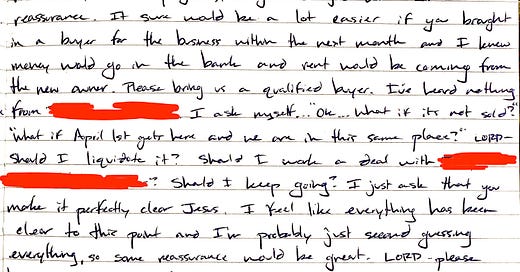 reassurance. It sure would be a lot easier if you brought
in a buyer for the business within the next month and I knew
money would go in the bank and rent would be coming from
the new owner. Please bring us a qualified buyer. I've heard nothing
from I ask myself... "OK... What if it's not sold?"
"What if April 1st gets here and we are in this same place?" LORD-
Should I liquidate it? Should I make a deal with
? Should I keep going? I just ask that you
make it perfectly clear Jesus. I feel like everything has been
clear to this point and I'm probably just second guessing
everything, so some reassurance would be great. LORD-please